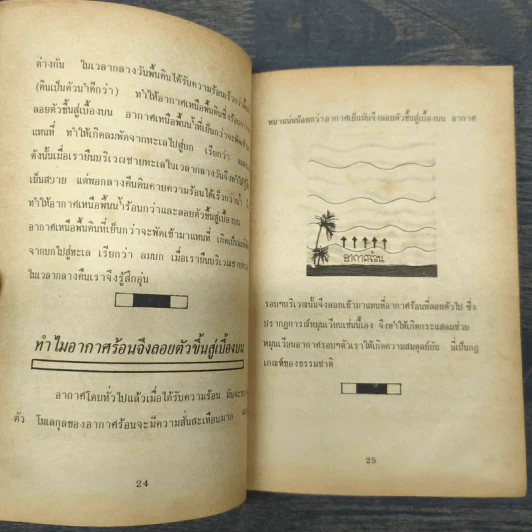 ต่างกัน ในเวลากลางวันพื้นดินได้รับความร้อนเร็วกว่าพื้น
(ดินเป็นตัวนำดีกว่า) ทำให้อากาศเหนือพื้นดิน
ลอยตัวขึ้นสู่เบื้องบน อากาศเหนือพื้นน้ำที่เย็นกว่าจะพัด
แทนที่ ทำให้เกิดลมพัดจากทะเลไปสู่บก เรียกว่า
ดังนั้นเมื่อเรายืนบริเวณชายทะเลในเวลากลางวันจึง
เย็นสบาย แต่พอกลางคืนดินคายความร้อนได้เร็วกว่าน้ำ
ทำให้อากาศเหนือพื้นน้ำร้อนกว่าและลอยตัวขึ้นสู่เบื้องบน
อากาศเหนือพื้นดินที่เย็นกว่าจะพัดเข้ามาแทนที่ เกิดเป็น
จากบกไปสู่ทะเล เรียกว่า ลมบก เมื่อเรายืนบริเวณชาย
ในเวลากลางคืนเราจึงรู้สึกอุ่น
ทำไมอากาศร้อนจึงลอยตัวขึ้นสู่เบื้องบน
อากาศโดยทั่วไปแล้วเมื่อได้รับความร้อน มันจะ
ตัว โมเลกุลของอากาศร้อนจะมีความสั่นสะเทือนมาก
24
หนาแน่นน้อยกว่าอากาศเย็นมันจึงลอยตัวขึ้นสู่เบื้องบน อากาศ
อากาศร้อน
รอบๆบริเวณนั้นจึงลอยเข้ามาแทนที่อากาศร้อนที่ลอยตัวไป ซึ่ง
ปรากฏการณ์หมุนเวียนเช่นนี้เอง จึงทำให้เกิดกระแสลมช่วย
หมุนเวียนอากาศรอบๆตัวเราให้เกิดความสมดุลย์กัน นี่เป็นกฎ
เกณฑ์ของธรรมชาติ
25